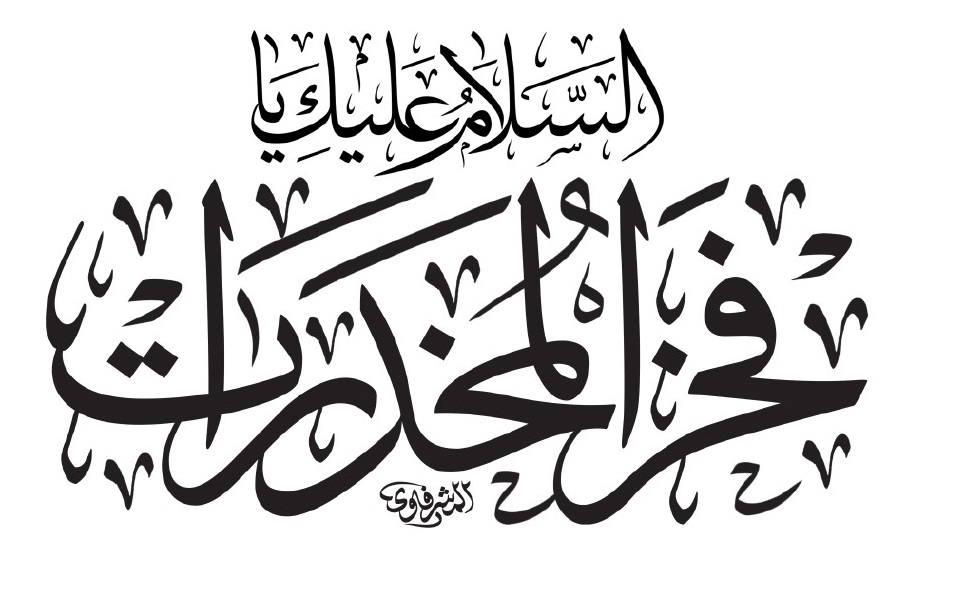 السَّلَامُ عَلَيْكِ يَا
فَخْرَ المُخَدَّرَات
المشرفاوي